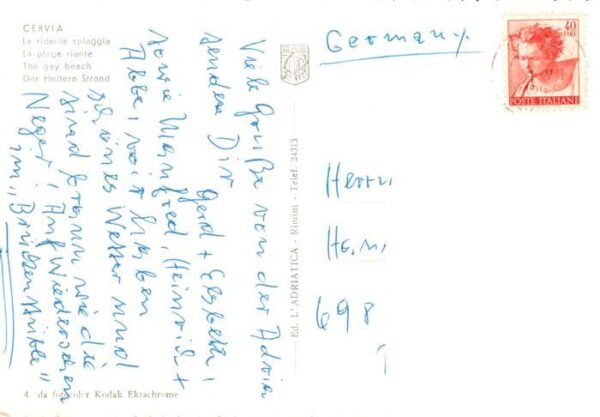 CERVIA
La ridente spiaggia
La plage riante
The gay beach
Der Heitere Strand
Viele Grüße von der Adria
senden Dir Gerd + Elsbeth,
sowie Manfred, Heinrich +
Abbe, wir haben
schönes Wetter und
sind braun wie die
Neger! Auf Wiedersehen
im „
4 da fotocolor Kodak Ektachrome
Ed. L'ADRIATICA - Rimini - Telef. 24313
Germany
40
LIRE
POSTE ITALIANE
Herrn
698